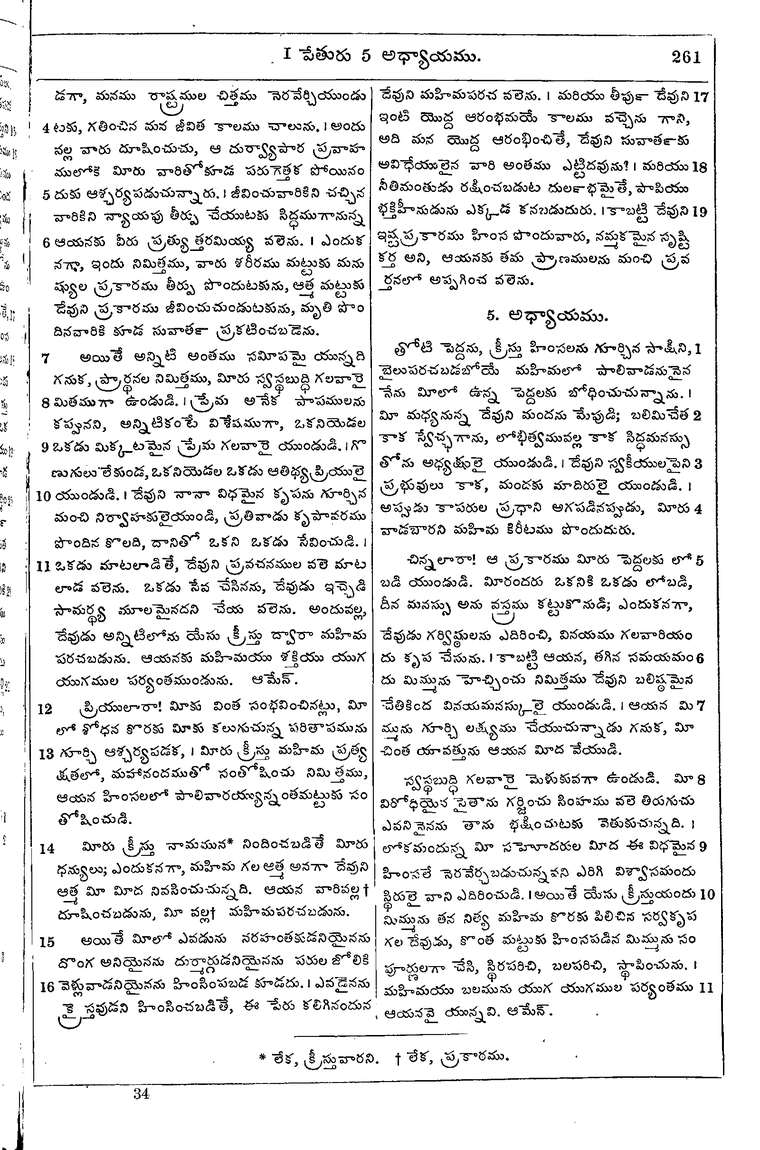 I పేతురు 5 అధ్యాయము. 261
డగా, మనము రాష్ట్రముల చిత్తము నెరవేర్చియుండు
4 టుకు, గతించిన మన జీవిత కాలము చాలును. । అందు
నల్ల వారు దూషించుచు, ఆ దుర్వ్యాపార ప్రవాహ
ములోకి మీరు వారితోకూడ పరుగెత్తక పోయినం
5 దుకు ఆశ్చర్యపడుచున్నారు. । జీవించువారికిని చచ్చిన
వారికిని న్యాయపు తీర్పు చేయుటకు సిద్ధముగానున్న
6 ఆయనకు వీరు ప్రత్యుత్తరమియ్య వలెను. । ఎందుక
నగా, ఇందు నిమిత్తము, వారు శరీరము మట్టుకు మను
ష్యుల ప్రకారము తీర్పు పొందుటకును, ఆత్మ మట్టుకు
దేవుని ప్రకారము జీవించుచుండుటకును, మృతి పొం
దినవారికి కూడ సువార్త ప్రకటించబడెను.
7 అయితే అన్నిటి అంతము సమీపమై యున్నది
గనుక, ప్రార్థనల నిమిత్తము, మీరు స్వస్థబుద్ధి గలవారై
8 మితముగా ఉండుడి. । ప్రేమ అనేక పాపములను
కప్పునని, అన్నిటికంటే విశేషముగా, ఒకనియెడల
9 ఒకడు మిక్కటమైన ప్రేమ గలవారై యుండుడి. । గొ
ణుగులు లేకుండ, ఒకనియెడల ఒకడు ఆతిథ్య ప్రియులై
10 యుండుడి. । దేవుని నానా విధమైన కృపను గూర్చిన
మంచి నిర్వాహకులైయుండి, ప్రతివాడు కృపావరము
పొందిన కొలది, దానితో ఒకని ఒకడు సేవించుడి. ।
11 ఒకడు మాటలాడితే, దేవుని ప్రవచనముల వలె మాట
లాడ వలెను. ఒకడు సేవ చేసినను, దేవుడు ఇచ్చెడి
సామర్థ్య మూలమైనదని చేయ వలెను. అందువల్ల,
దేవుడు అన్నిటిలోను యేసు క్రీస్తు ద్వారా మహిమ
పరచబడును. ఆయనకు మహిమయు శక్తియు యుగ
యుగముల పర్యంతముండును. ఆమేన్.
12 ప్రియులారా! మీకు వింత సంభవించినట్లు, మీ
లో శోధన కొరకు మీకు కలుగుచున్న పరితాపమును
13 గూర్చి ఆశ్చర్యపడక, । మీరు క్రీస్తు మహిమ ప్రత్య
క్షతలో, మహానందముతో సంతోషించు నిమిత్తము,
ఆయన హింసలలో పాలివారయ్యున్నంతమట్టుకు సం
తోషించుడి.
14 మీరు క్రీస్తు నామమున* నిందించబడితే మీరు
ధన్యులు; ఎందుకనగా, మహిమ గల ఆత్మ అనగా దేవుని
ఆత్మ మీ మీద నివసించుచున్నది. ఆయన వారివల్ల†
దూషించబడును, మీ వల్ల† మహిమపరచబడును.
15 అయితే మీలో ఎవడును నరహంతకుడనియైనను
దొంగ అనియైనను దుర్మార్గుడనియైనను పరుల జోలికి
16 వెళ్లువాడనియైనను హింసింపబడ కూడదు. । ఎవడైనను
క్రైస్తవుడని హింసించబడితే, ఈ పేరు కలిగినందున
దేవుని మహిమపరచ వలెను. । మరియు తీర్పు దేవుని 17
ఇంటి యొద్ద ఆరంభమయే కాలము వచ్చెను గాని,
అది మన యొద్ద ఆరంభించితే, దేవుని సువార్తకు
అవిధేయులైన వారి అంతము ఎట్టిదవును! । మరియు 18
నీతిమంతుడు రక్షించబడుట దుర్లభమైతే, పాపియు
భక్తిహీనుడును ఎక్కడ కనబడుదురు. । కాబట్టి దేవుని 19
ఇష్టప్రకారము హింస పొందువారు, నమ్మకమైన సృష్టి
కర్త అని, ఆయనకు తమ ప్రాణములను మంచి ప్రవ
ర్తనలో అప్పగించ వలెను.
5. అధ్యాయము.
తోటి పెద్దను, క్రీస్తు హింసలను గూర్చిన సాక్షిని, 1
బైలుపరచబడబోయే మహిమలో పాలివాడనునైన
నేను మీలో ఉన్న పెద్దలకు బోధించుచున్నాను. ।
మీ మధ్యనున్న దేవుని మందను మేపుడి; బలిమిచేత 2
కాక స్వేచ్ఛగాను, లోభిత్వమువల్ల కాక సిద్ధమనస్సు
తోను అధ్యక్షులై యుండుడి. । దేవుని స్వకీయులపైని 3
ప్రభువులు కాక, మందకు మాదిరులై యుండుడి. ।
అప్పుడు కాపరుల ప్రధాని అగపడినప్పుడు, మీరు 4
వాడబారని మహిమ కిరీటము పొందుదురు.
చిన్నలారా! ఆ ప్రకారము మీరు పెద్దలకు లో 5
బడి యుండుడి. మీరందరు ఒకనికి ఒకడు లోబడి,
దీన మనస్సు అను వస్త్రము కట్టుకొనుడి; ఎందుకనగా,
దేవుడు గర్విష్ఠులను ఎదిరించి, వినయము గలవారియం
దు కృప చేసును. । కాబట్టి ఆయన, తగిన సమయమం 6
దు మిమ్మును హెచ్చించు నిమిత్తము దేవుని బలిష్ఠమైన
చేతికింద వినయమనస్కులై యుండుడి. । ఆయన మి 7
మ్మును గూర్చి లక్ష్యము చేయుచున్నాడు గనుక, మీ
చింత యావత్తును ఆయన మీద వేయుడి.
స్వస్థబుద్ధి గలవారై మెళుకువగా ఉండుడి. మీ 8
విరోధియైన సైతాను గర్జించు సింహము వలె తిరుగుచు
ఎవనినైనను తాను భక్షించుటకు వెతుకుచున్నది. ।
లోకమందున్న మీ సహోదరుల మీద ఈ విధమైన 9
హింసలే నెరవేర్చబడుచున్నవని ఎరిగి విశ్వాసమందు
స్థిరులై వాని ఎదిరించుడి. । అయితే యేసు క్రీస్తుయందు 10
మిమ్మును తన నిత్య మహిమ కొరకు పిలిచిన సర్వకృప
గల దేవుడు, కొంత మట్టుకు హింసపడిన మిమ్మును సం
పూర్ణులగా చేసి, స్థిరపరిచి, బలపరిచి, స్థాపించును. ।
మహిమయు బలమును యుగ యుగముల పర్యంతము 11
ఆయనవై యున్నవి. ఆమేన్.
* లేక, క్రీస్తువారని. † లేక, ప్రకారము.
34